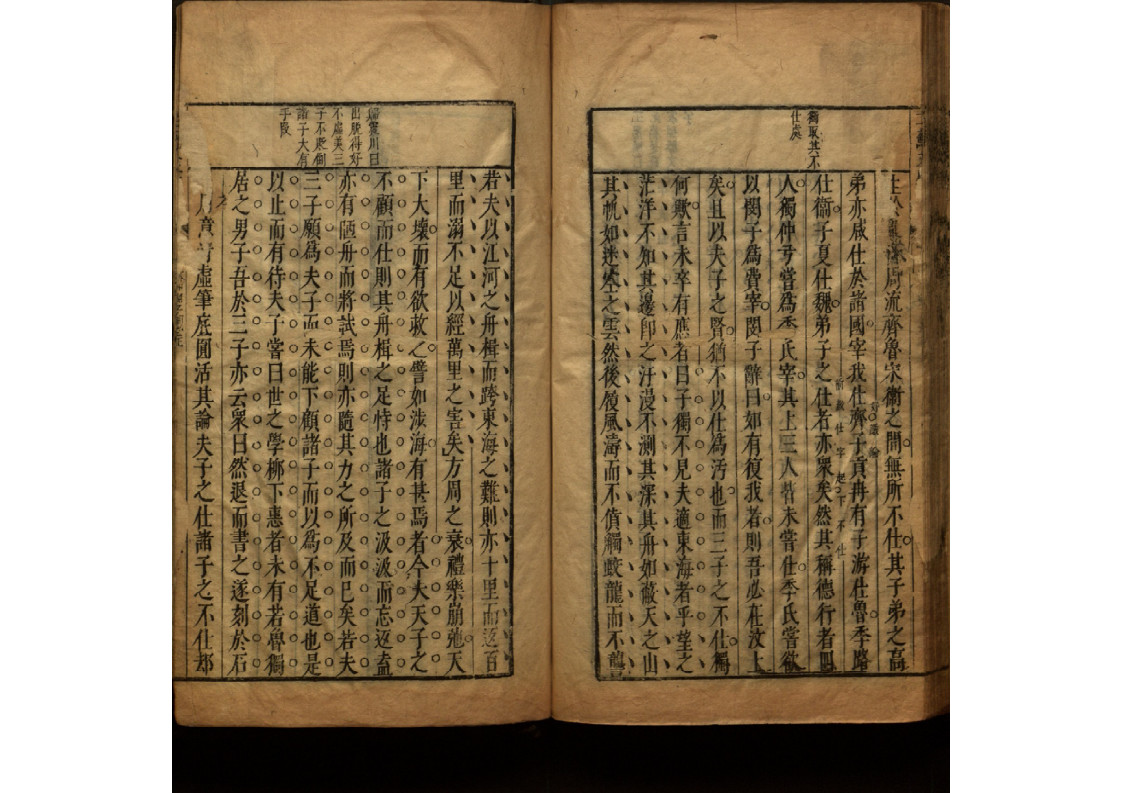 獨取其不
仕處
周流齊魯宋衞之間無所不仕其子弟之高
好議論
弟亦咸仕於諸國宰我仕齊子貢冉有子游仕魯季路
前數仕字起下不仕
仕衞子夏仕魏弟子之仕者亦衆矣然其稱德行者四
人獨仲弓嘗爲季氏宰其上三人皆未嘗仕季氏嘗欲
以閔子爲費宰閔子辭曰如有復我者則吾必在汶上
矣且以夫子之賢猶不以仕爲汚也而三子之不仕獨
何歟言未卒有應者曰子獨不見夫適東海者乎望之
茫洋不知其邊卽之汙漫不測其深其舟如蔽天之山
其帆如迷空之雲然後履風濤而不僨觸蛟龍而不讋
歸震川曰
出脫得好
不虛美三
子不貶側
諸子大有
手段
若夫以江河之舟楫而跨東海之難則亦十里而返百
里而溺不足以經萬里之害矣方周之衰禮樂崩弛天
下大壞而有欲救之譬如涉海有甚焉者今夫天子之
不顧而仕則其舟楫之足恃也諸子之汲汲而忘返盍
亦有陋舟而將試焉則亦隨其力之所及而已矣若夫
三子願爲夫子而未能下顧諸子而以爲不足道也是
以止而有待夫子嘗曰世之學柳下惠者未有若魯獨
居之男子吾於三子亦云衆曰然退而書之遂刻於石
虛筆底圓活其論夫子之仕諸子之不仕却